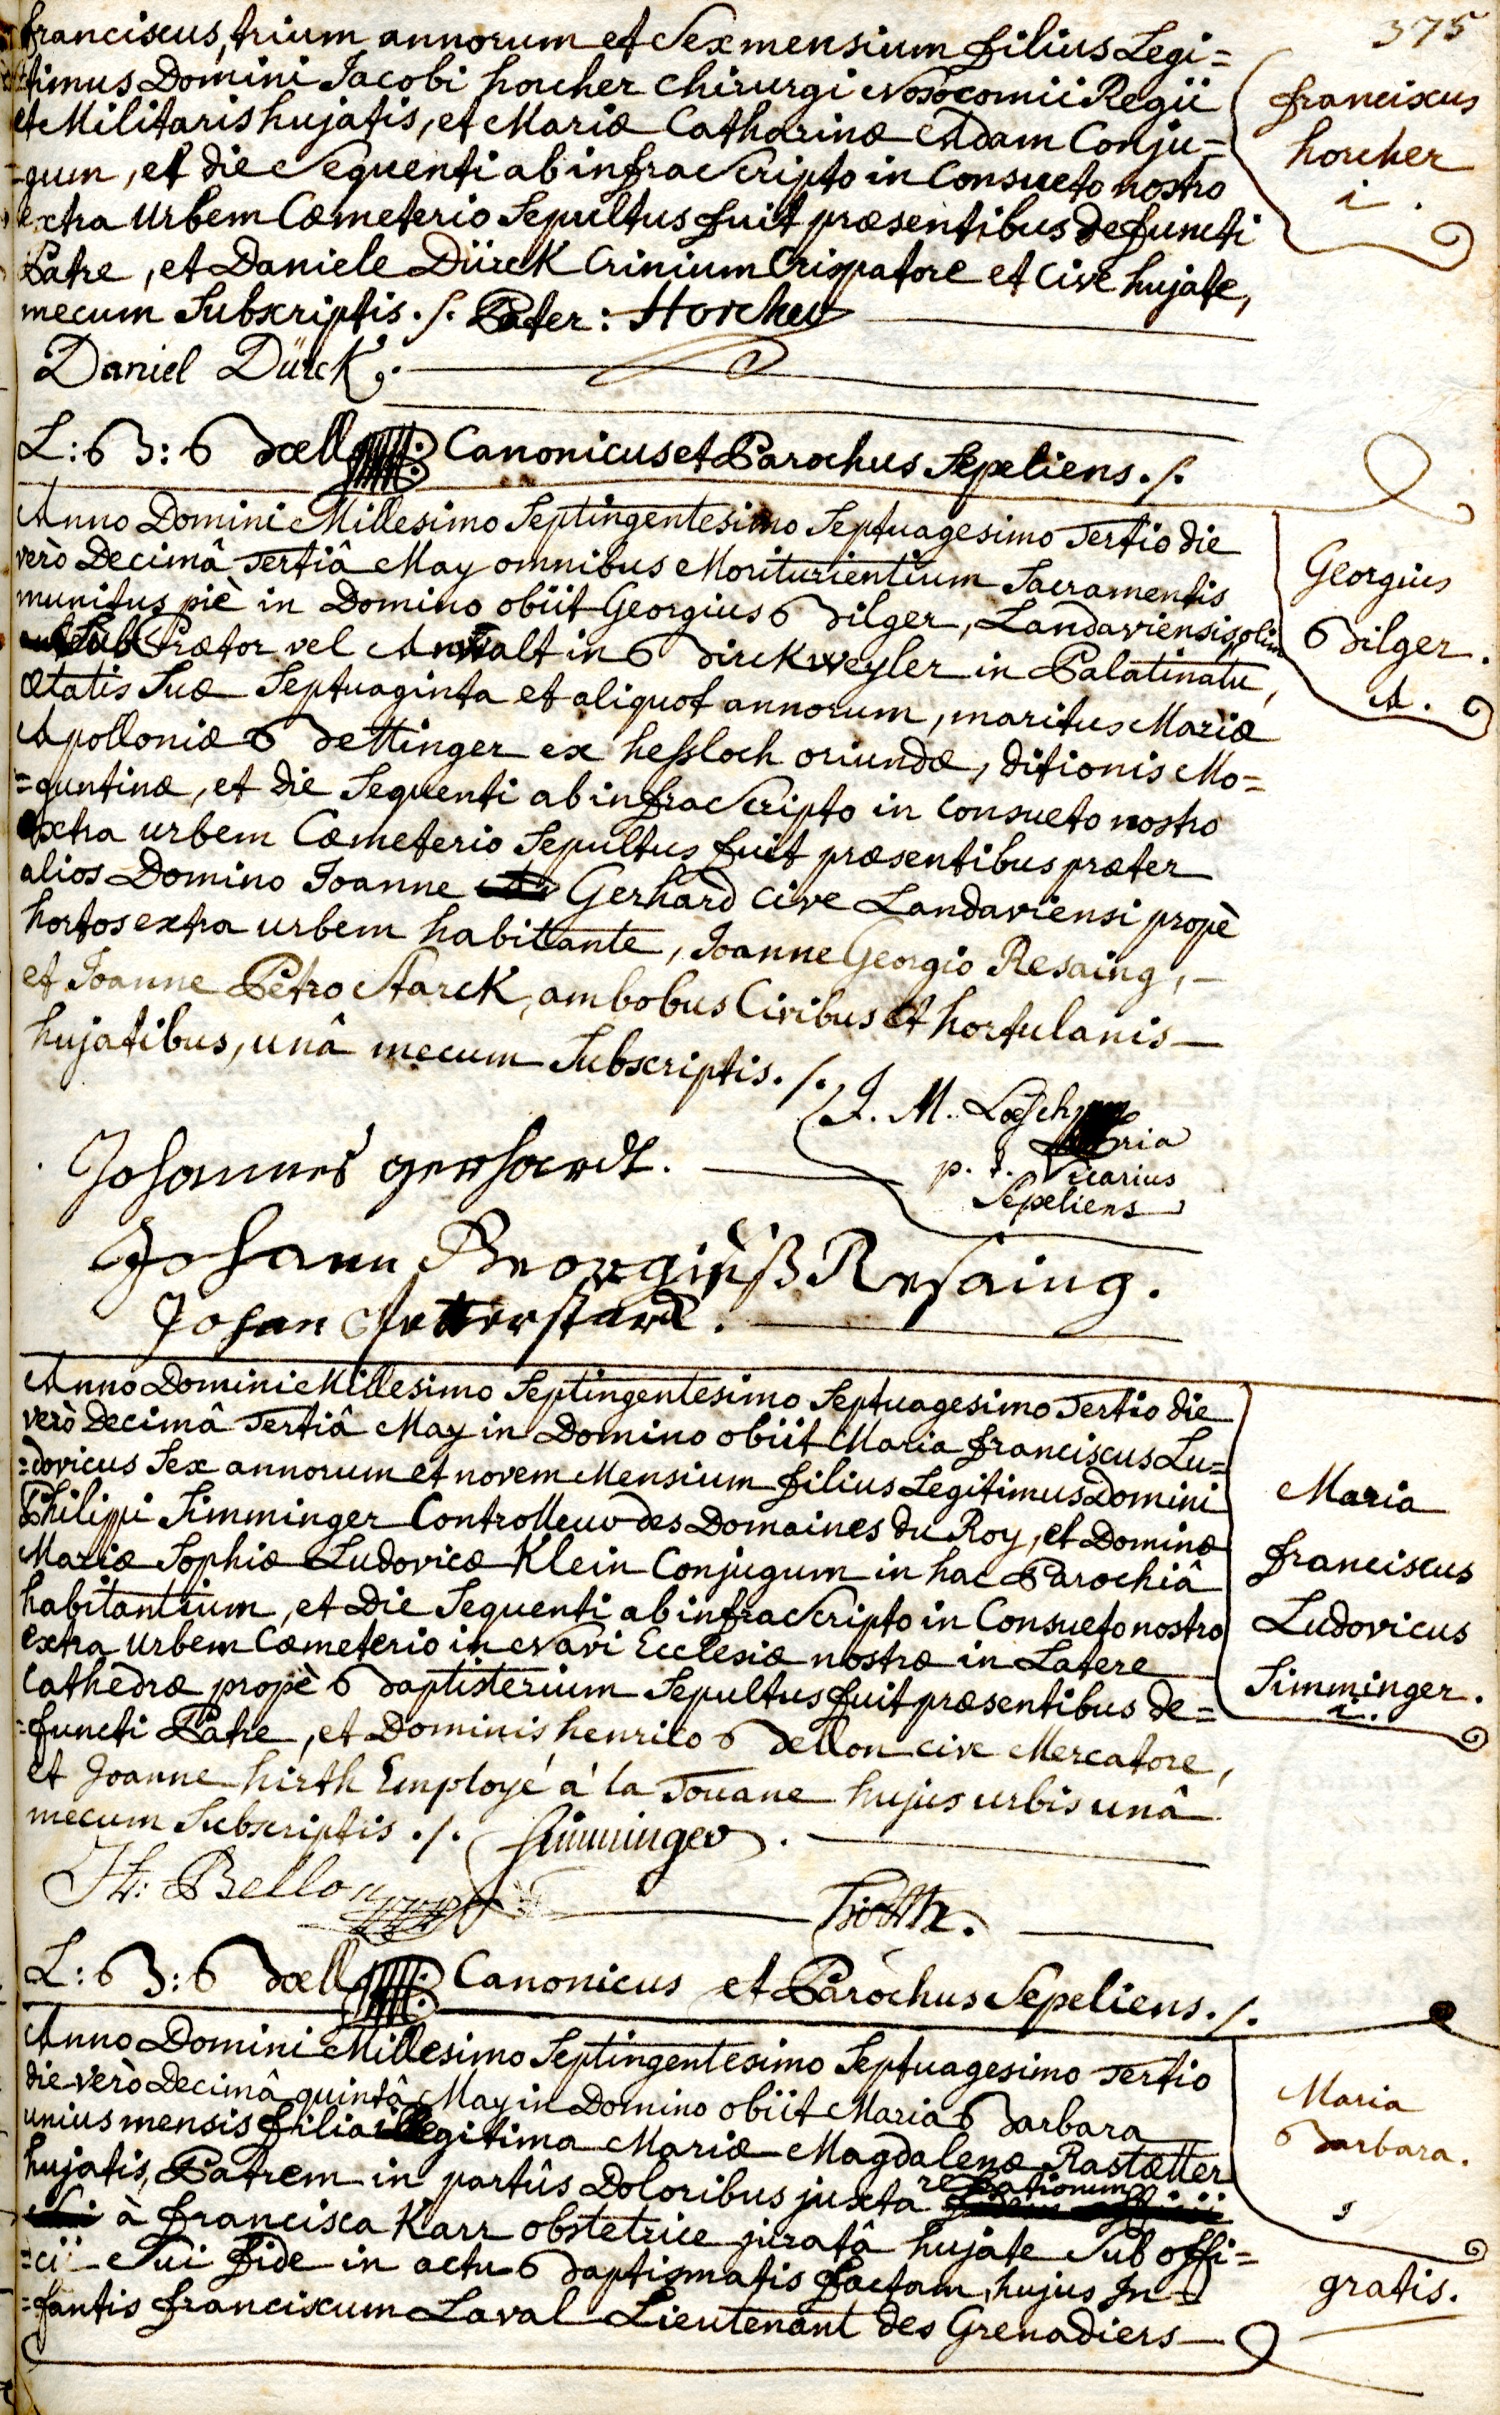 375
franciscus, trium annorum et Sex mensium filius Legi=
=timus Domini Jacobi horcher chirurgi Nosocomii Regii
et Militaris hujatis, et Mariæ Catharinæ Adam Conju=
=gum, et die Sequenti ab infra Scripto in Consueto nostro
extra Urbem Cæmeterio Sepultus fuit præsentibus defuncti
Patre, et Daniele Dürck Crinium Crispatore et Cive hujate,
mecum Subscriptis ./. Pater: Horcher
Daniel Dürck.
franciscus
horcher
i.
L: B: Bœll Canonicus et Parochus Sepeliens ./.
Anno Domini Millesimo Septingentesimo Septuagesimo Tertio die
verò Decimâ Tertiâ May omnibus Moriturientium Sacramentis
munitus piè in Domino obiit Georgius Bilger, Landaviensis, olim
Sub Prætor vel Anwalt in Birckweyler in Palatinatu,
ætatis Suæ Septuaginta et aliquot annorum, maritus Mariæ
Apolloniæ Bettinger ex heßloch oriundæ, ditionis Mo=
=guntinæ, et die Sequenti ab infra Scripto in consueto nostro
extra urbem Cæmeterio Sepultus fuit præsentibus præter
alios Domino Joanne Gerhard cive Landaviensi propè
hortos extra urbem habitante, Joanne Georgio Resaing,
et Joanne Petro Starck, ambobus Civibus et hortulanis
hujatibus, unâ mecum Subscriptis ./.
Georgius
Bilger.
A.
J. M.
p. t. Vicarius
Sepeliens
Johannes gerhardt.
Johann Georgiuß Resaing.
Johan Petter starck.
Anno Domini Millesimo Septingentesimo Septuagesimo Tertio die
verò Decimâ Tertiâ May in Domino obiit Maria franciscus Lu=
=dovicus Sex annorum et novem Mensium filius Legitimus Domini
Philippi Simminger Controlleur des Domaines du Roy, et Dominæ
Mariæ Sophiæ Ludovicæ Klein Conjugum in hac Parochiâ
habitantium, et die Sequenti ab infra Scripto in Consueto nostro
extra Urbem Cæmeterio in Navi Ecclesiæ nostræ in Latere
Cathedræ propè Baptisterium Sepultus fuit præsentibus de=
=functi Patre, et Dominis henrico Bellon cive Mercatore,
et Joanne hirth Employé à la Douane hujus urbis unâ
mecum Subscriptis ./. Simminger.
Maria
franciscus
Ludovicus
Simminger.
i.
H: Bellon
Hirth.
L: B: Bœll Canonicus et Parochus Sepeliens ./.
Anno Domini Millesimo Septingentesimo Septuagesimo Tertio
die verò Decimâ quintâ May in Domino obiit Maria Barbara
unius mensis filia illegitima Mariæ Magdalenæ Rastætter
hujatis, Patrem in partûs Doloribus juxta relationum
à francisca Karr obstetrice juratâ hujate Sub offi=
=cii Sui fide in actu Baptismatis factam, hujus In=
=fantis franciscum Laval Lieutenant des Grenadiers
Maria
Barbara.
i
gratis.